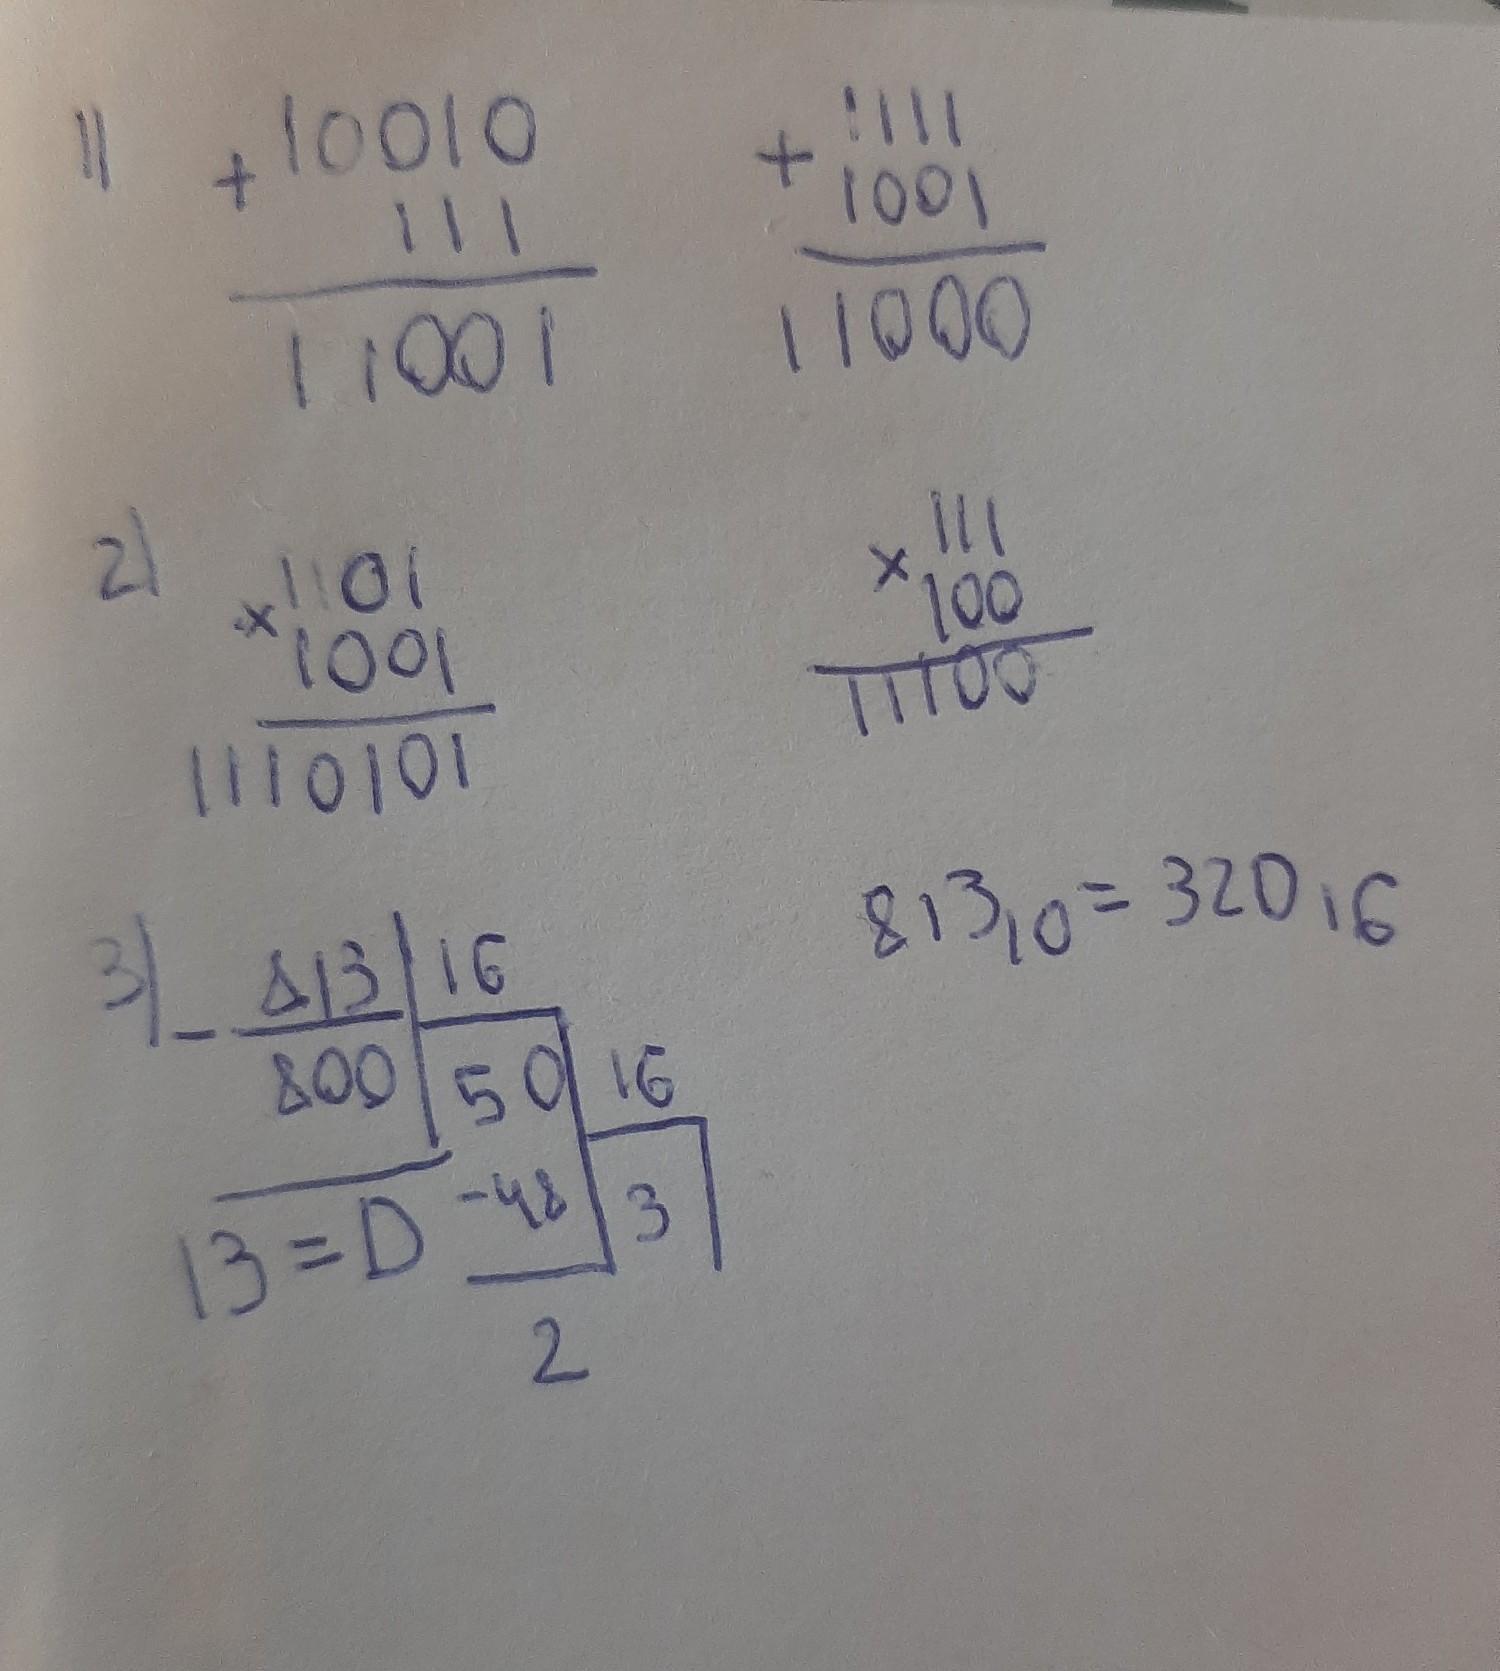 1) + 10010
111
11001
+ 1111
1001
11000
2) × 1101
1001
1110101
× 111
100
11100
3) - 813 | 16
800 50 16
13 = D -48 3
2
813₁₀ = 32D₁₆